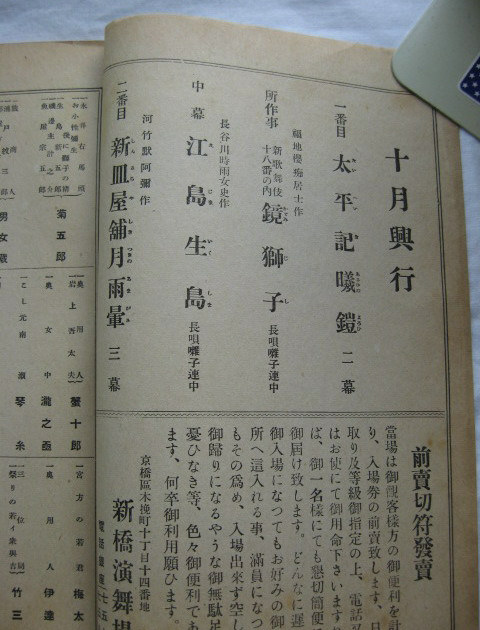 十月興行
一番目 太平記曦鎧 二幕
福地櫻痴居士作
所作事 新歌舞伎十八番の内 鏡獅子 長唄囃子連中
長谷川時雨女史作
中幕 江島生島 長唄囃子連中
河竹默阿彌作
二番目 新皿屋舗月雨暈 三幕
前賣切符發賣
當場は御觀客樣方の御便利を計
り、入場券の前賣致します、日
取り及等級御指定の上、電話又
はお使にて御用命下さいます
ば、御一名樣にても懇切簡便
御屆け致します。どんなに遲
御入場になつてもお好みの御
所へ這入れる事、滿員になつ
もその爲め、入場出來ず空し
御歸りになるやうな御無駄足
憂ひなき等、色々御便利であ
ます、何卒御利用願ひます。
京橋區木挽町十丁目十四番地
新橋演舞場
菊五郎
男女藏
奥用人
岩上吾太夫
蟹十郎
奥女中
瀧之亟
こし元南瀬
琴糸
宮方の若君
梅太
奥用人
伊達
三位局
竹三